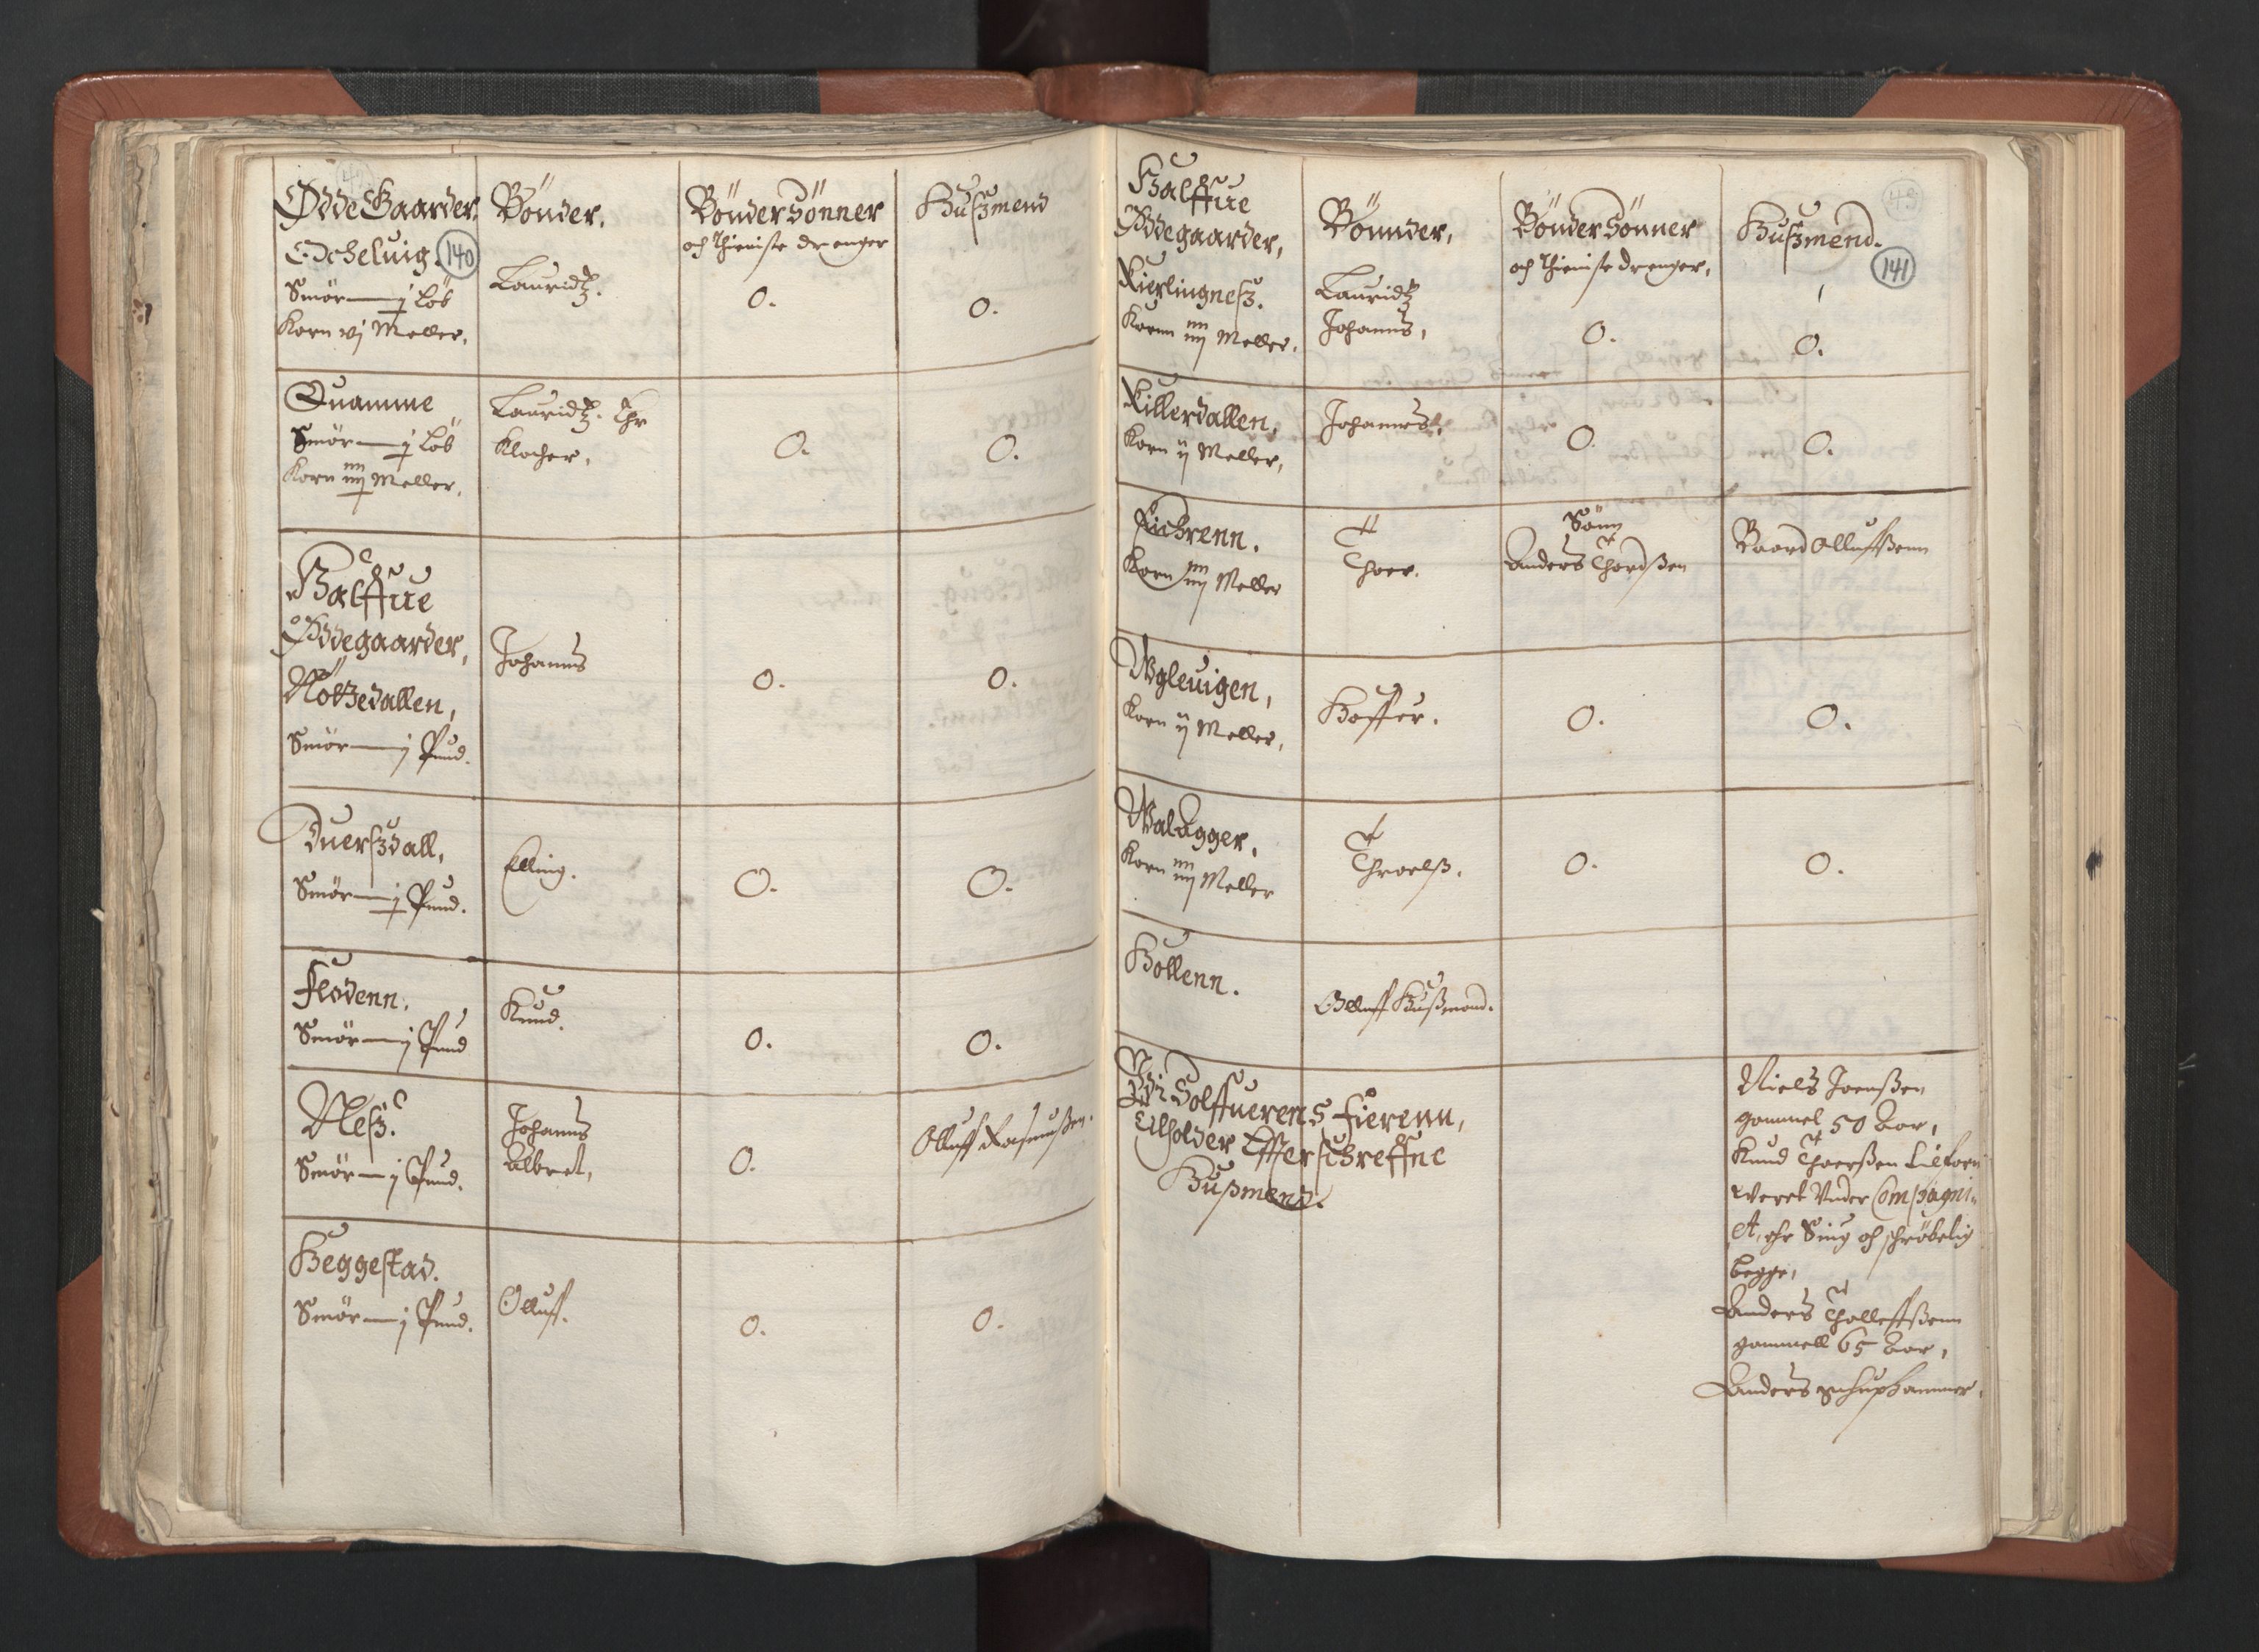 Ødde Gaarder,
Bönder,
Bönder Sönner
och Thieniste drenger
Hußmend
Ocheluig. 140
Smör — j Löb
Korn vj Meller,
Lauridtz.
0.
0.
Quamme
Smör — j Löb
Korn iiij Meller,
Lauridtz. Chr
Klocher,
0.
0.
Halffue
Ödegaarder,
Nötzedallen,
Smör — j Pund.
Johanns
0.
0.
Duerßdall,
Smör — j Pund.
Elling.
0.
0.
Flodenn.
Smör — j Pund
Knud.
0.
0.
Neß.
Smör — j Pund.
Johanns
Albret,
0.
Olluff Rasmußen.
Heggestad.
Smör — j Pund.
Olluff.
0.
0.
Halffue
Ödegaarder,
Bönnder,
Bönder Sönner
och Thieniste drenger,
Hußmend.
141
Kierlingneß.
Kornn iiij Meller,
Lauridtz
Johanns,
0.
0.
Killerdallen,
Korn ij Meller,
Johannes,
0.
0.
Eichrenn.
Korn iiij Meller
Thoer.
Sönn
Anders Thordßen
Baard Olluffßenn
Wgleuigen,
Korn ij Meller,
Hoffer.
0.
0.
Walagger.
Korn iiij Meller
Throelß.
0.
0.
Hollenn.
Olluff Hußmand.
Vdi Solffuerens Fierenn,
Effterschreffne
Hußmend.
Niels Joenßen
gammel 50 Aar,
Knud Thoerßen
weret Vnder Compagni-
A, ehr Siug och schröbelig
begge,
Anders Thollefßenn
gammell 65 Aar,
Anders